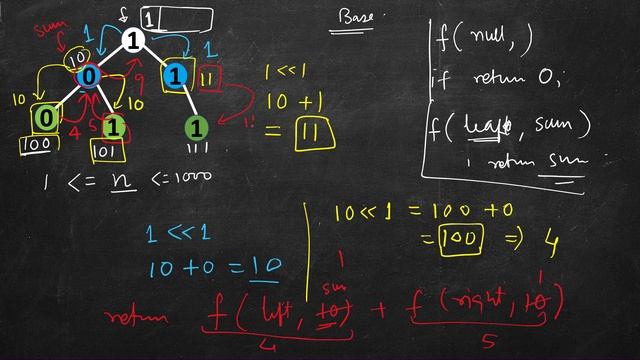 1
Base
f( null, )
return 0;
f( leaf, sum)
return sum
sum
1
1
1
10
0
1
11
9
10
10
0
4
5
1
1
100
101
111
1 << 1
10 + 1
= 11
1 <= n <= 1000
1 << 1
10 + 0 = 10
10 << 1 = 100 + 0
= 100 => 4
1
1
sum
return f( left, 10) + f( right, 10)
4
5